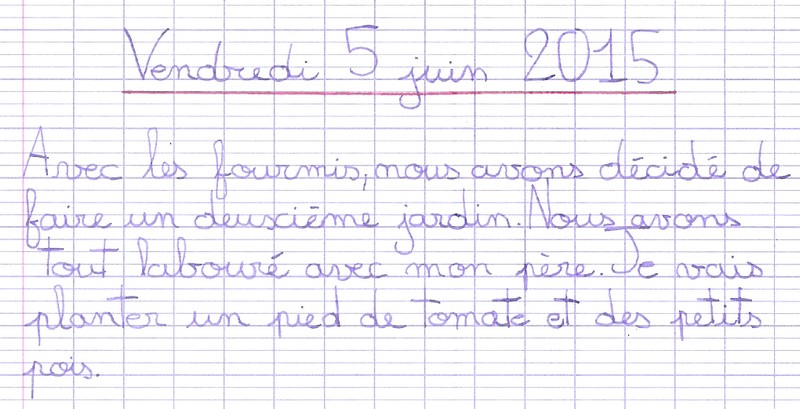 Vendredi 5 juin 2015
Avec les fourmis, nous avons décidé de
faire un deuxcième jardin. Nous avons
tout labouré avec mon père. Je vais
planter un pied de tomate et des petits
pois.